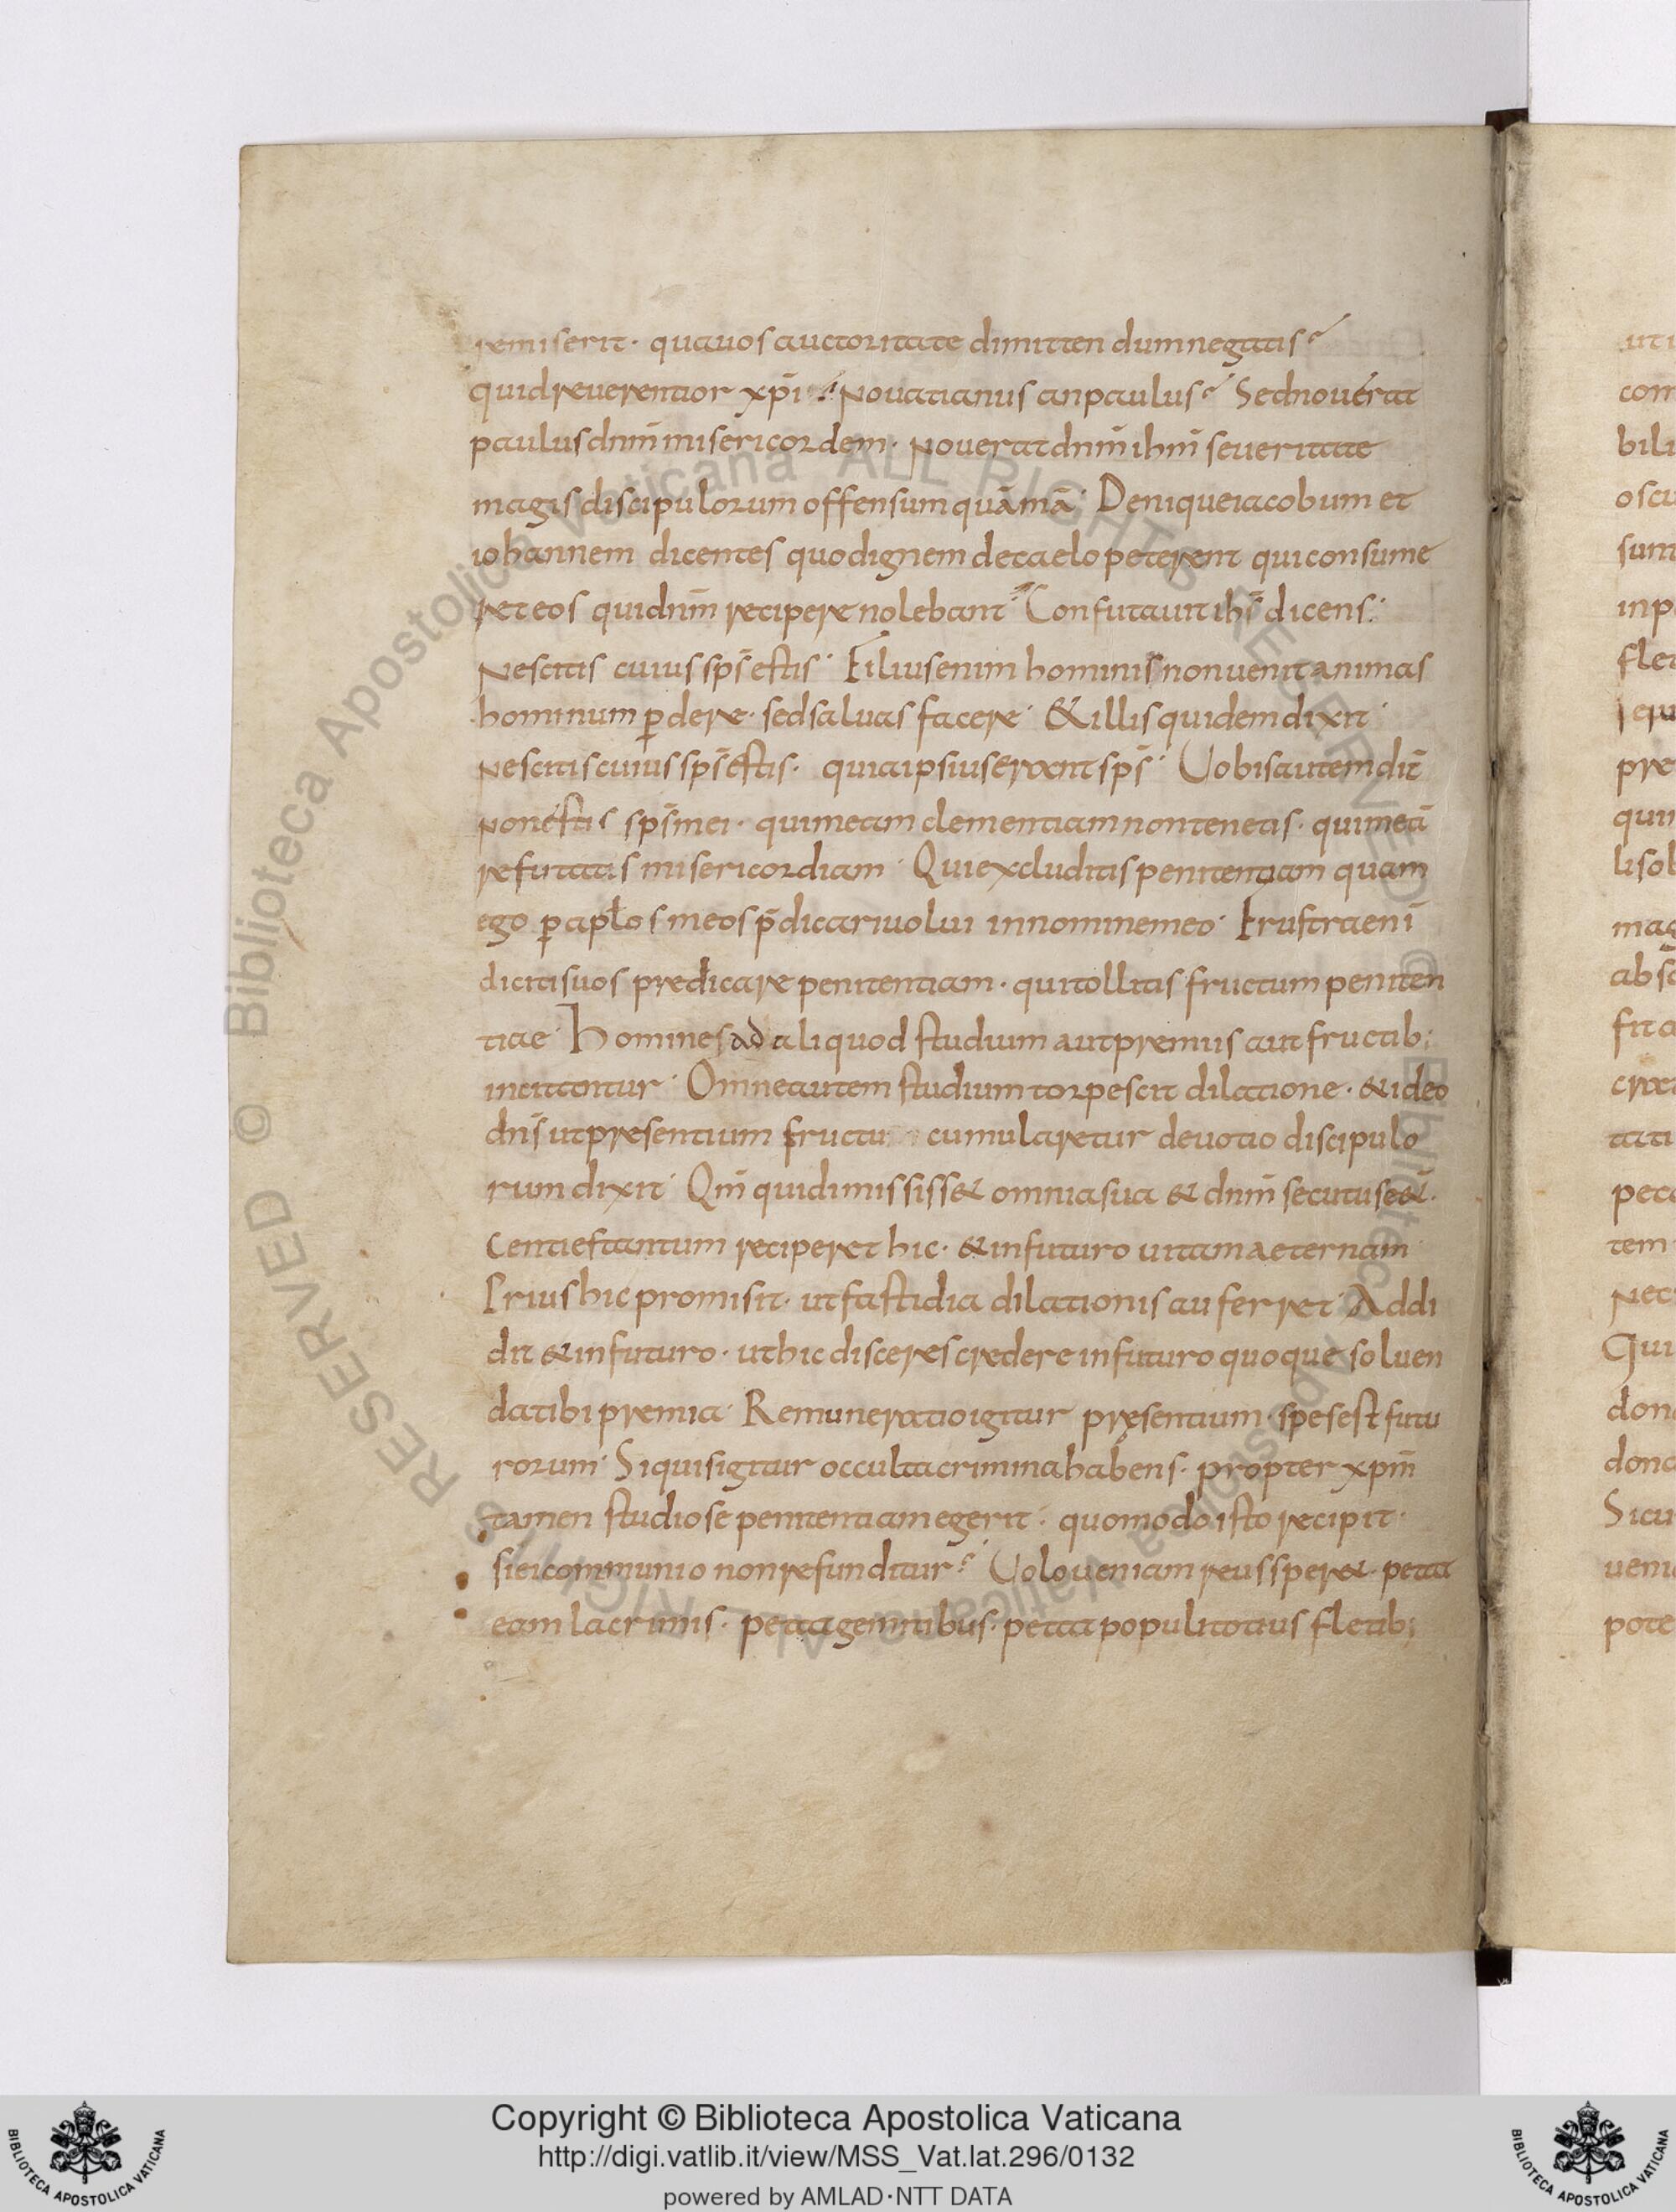 remiserit· qua uos auctoritate dimitten dum negatis?
quid reuerentior xp̄i? Nouatianus an paulus? Sed nouerat
paulus dnm̄ misericordem· Nouerat dnm̄ ihm̄ seueritate
magis discipulorum offensum quā mā· Denique iacobum et
iohannem dicentes quod ignem de caelo peterent qui consume
ret eos qui dnm̄ recipere nolebant· Confutauit ihs̄ dicens·
Nescitis cuius sps̄ estis· Filius enim hominis non uenit animas
hominum ꝑdere· sed saluas facere· & illis quidem dixit·
Nescitis cuius sps̄ estis· quia ipsius erant sps̄· Uobis autem dīt
Non estis sps̄ mei· qui meam clementiam non tenetis· qui meā
refutatis misericordiam· Qui excluditis penitentiam quam
ego ꝑ aplos meos p̄dicari uolui in nomine meo· Frustra enī
dicitis uos predicare penitentiam· qui tollitis fructum peniten
tiae· Homines ad aliquod studium aut premiis aut fructib;
incitantur· Omne autem studium torpescit dilatione· & ideo
dns̄ ut presentium fructu cumularetur deuotio discipulo
rum dixit· Qm̄ qui dimississ& omnia sua & dnm̄ secutus e&·
Centies tantum reciperet hic· & in futuro uitam aeternam·
Prius hic promisit· ut fastidia dilationis auferret· Addi
dit & in futuro· ut hic disceres credere in futuro quoque soluen
da tibi premia· Remuneratio igitur pręsentium· spes est futu
rorum· Si quis igitur occulta crimina habens· propter xpm̄
tamen studiose penitentiam egerit· quomodo isto recipit·
si ei communio non refunditur? Uolo ueniam reus sper&· petat
eam lacrimis· petat gemitibus· petat populi totius fletib;
ut i
com
bili
oscu
sunt
inp
flet
pre
quin
lisol
mag
absc
fit a
crat
tati
peta
tem
Nec
Qui
dona
dona
Sicu
ueni
pote
© Biblioteca Apostolica Vaticana ALL RIGHTS RESERVED © Biblioteca Apostolica Vaticana ALL RIGHTS RESERVED
Copyright © Biblioteca Apostolica Vaticana
http://digi.vatlib.it/view/MSS_Vat.lat.296/0132
powered by AMLAD·NTT DATA
BIBLIOTECA APOSTOLICA VATICANA
BIBLIOTECA APOSTOLICA VATICANA